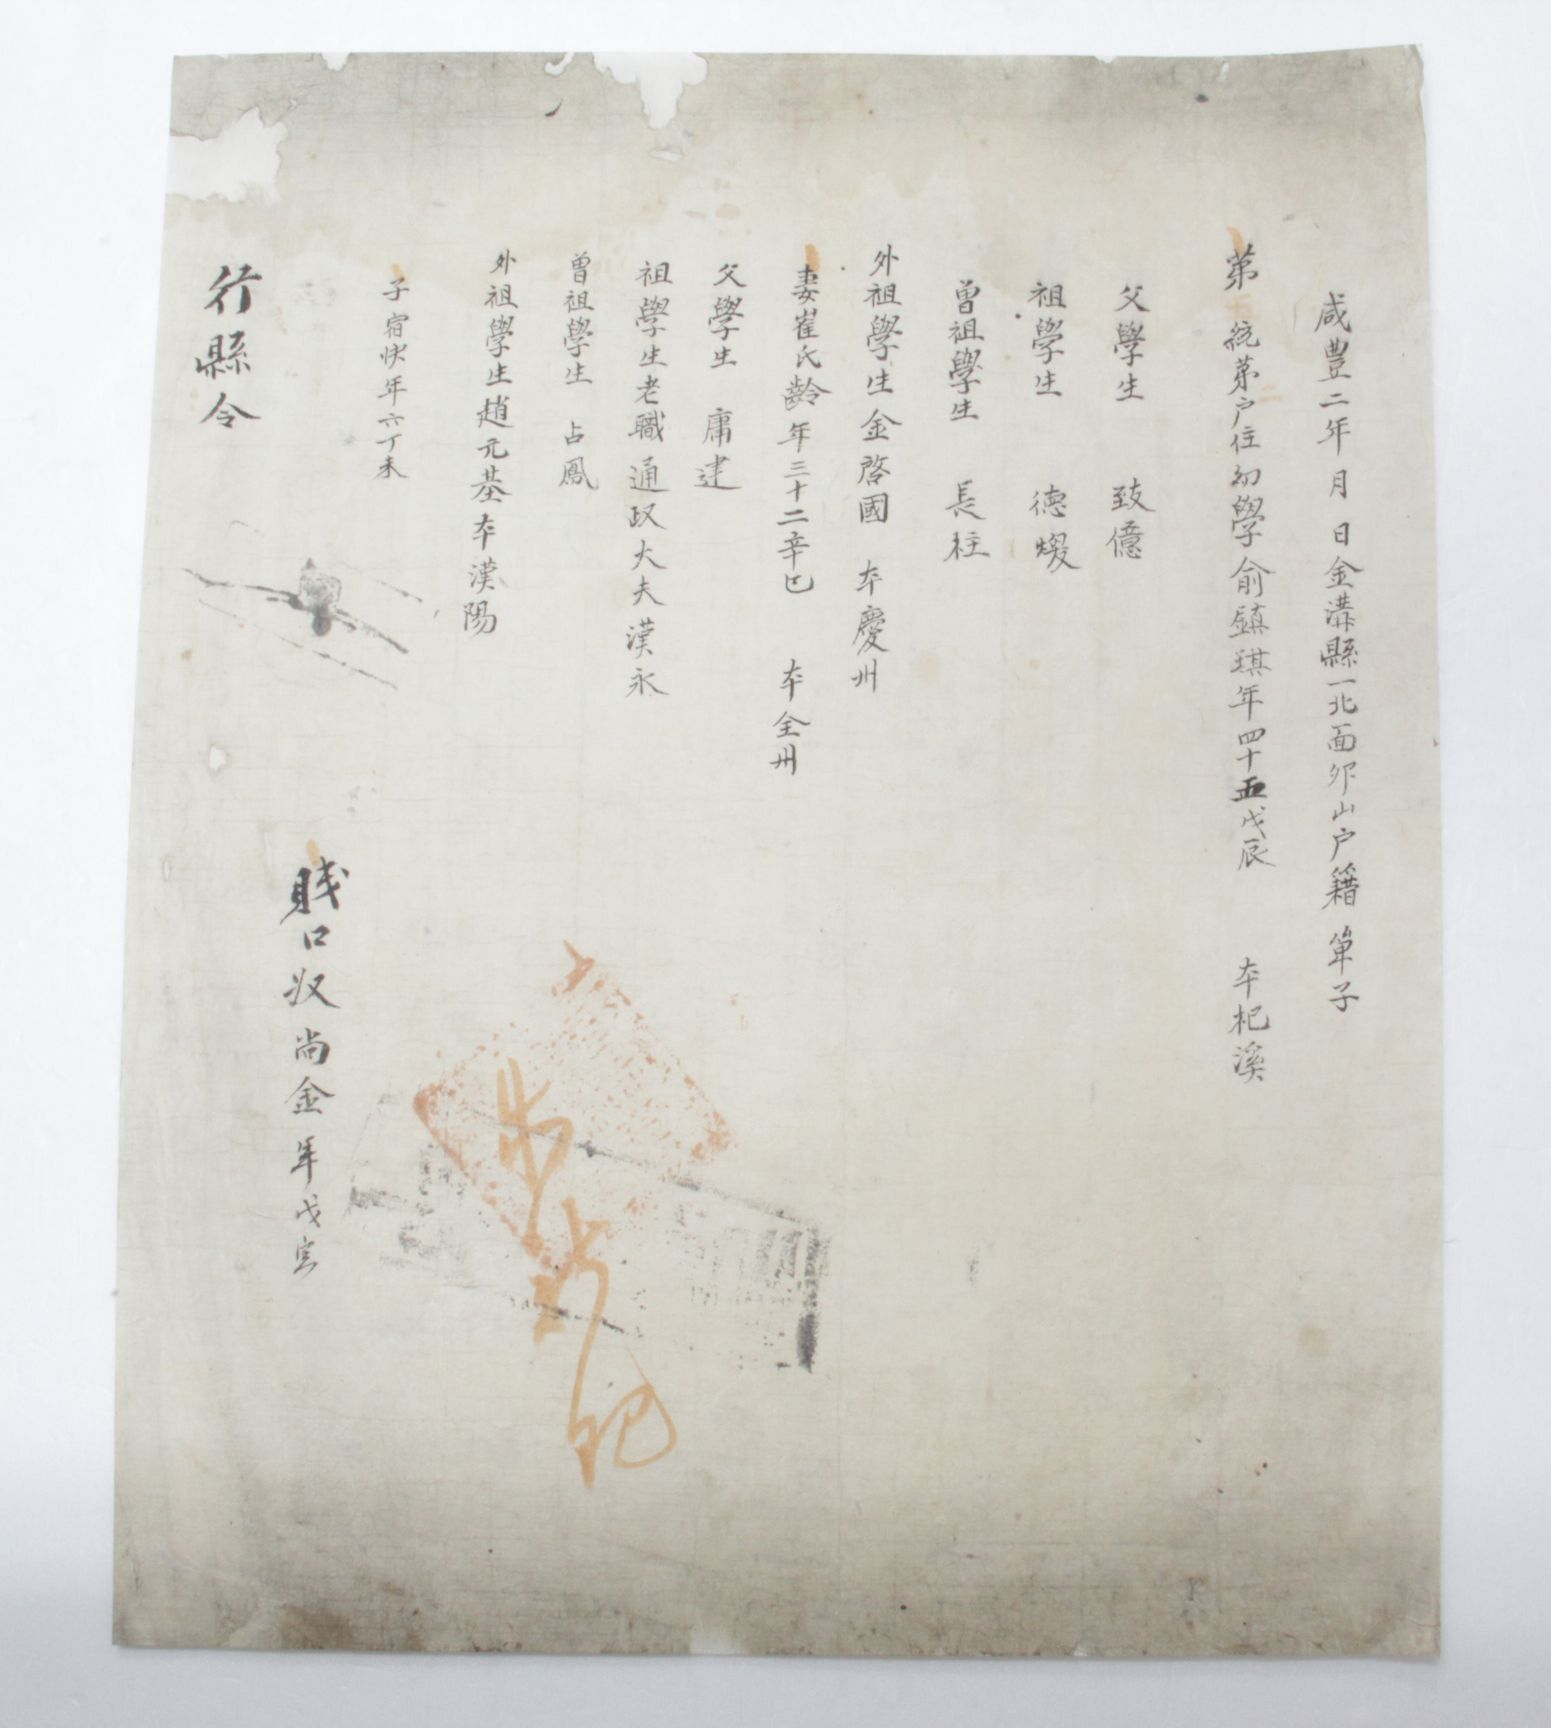 咸豊二年 月 日金溝縣一北面夘山户籍單子
第 統第 户住幼學俞鎮琪年四十五戊辰 本杞溪
父學生 致億
祖學生 德煖
曾祖學生 長柱
外祖學生金啓國 本慶州
妻崔氏齡年三十二辛巳 本全州
父學生 庸建
祖學生老職通政大夫漢永
曾祖學生 占鳳
外祖學生趙元基本漢陽
子宿快年六丁未
賤口奴尚金年戊寅
行縣令